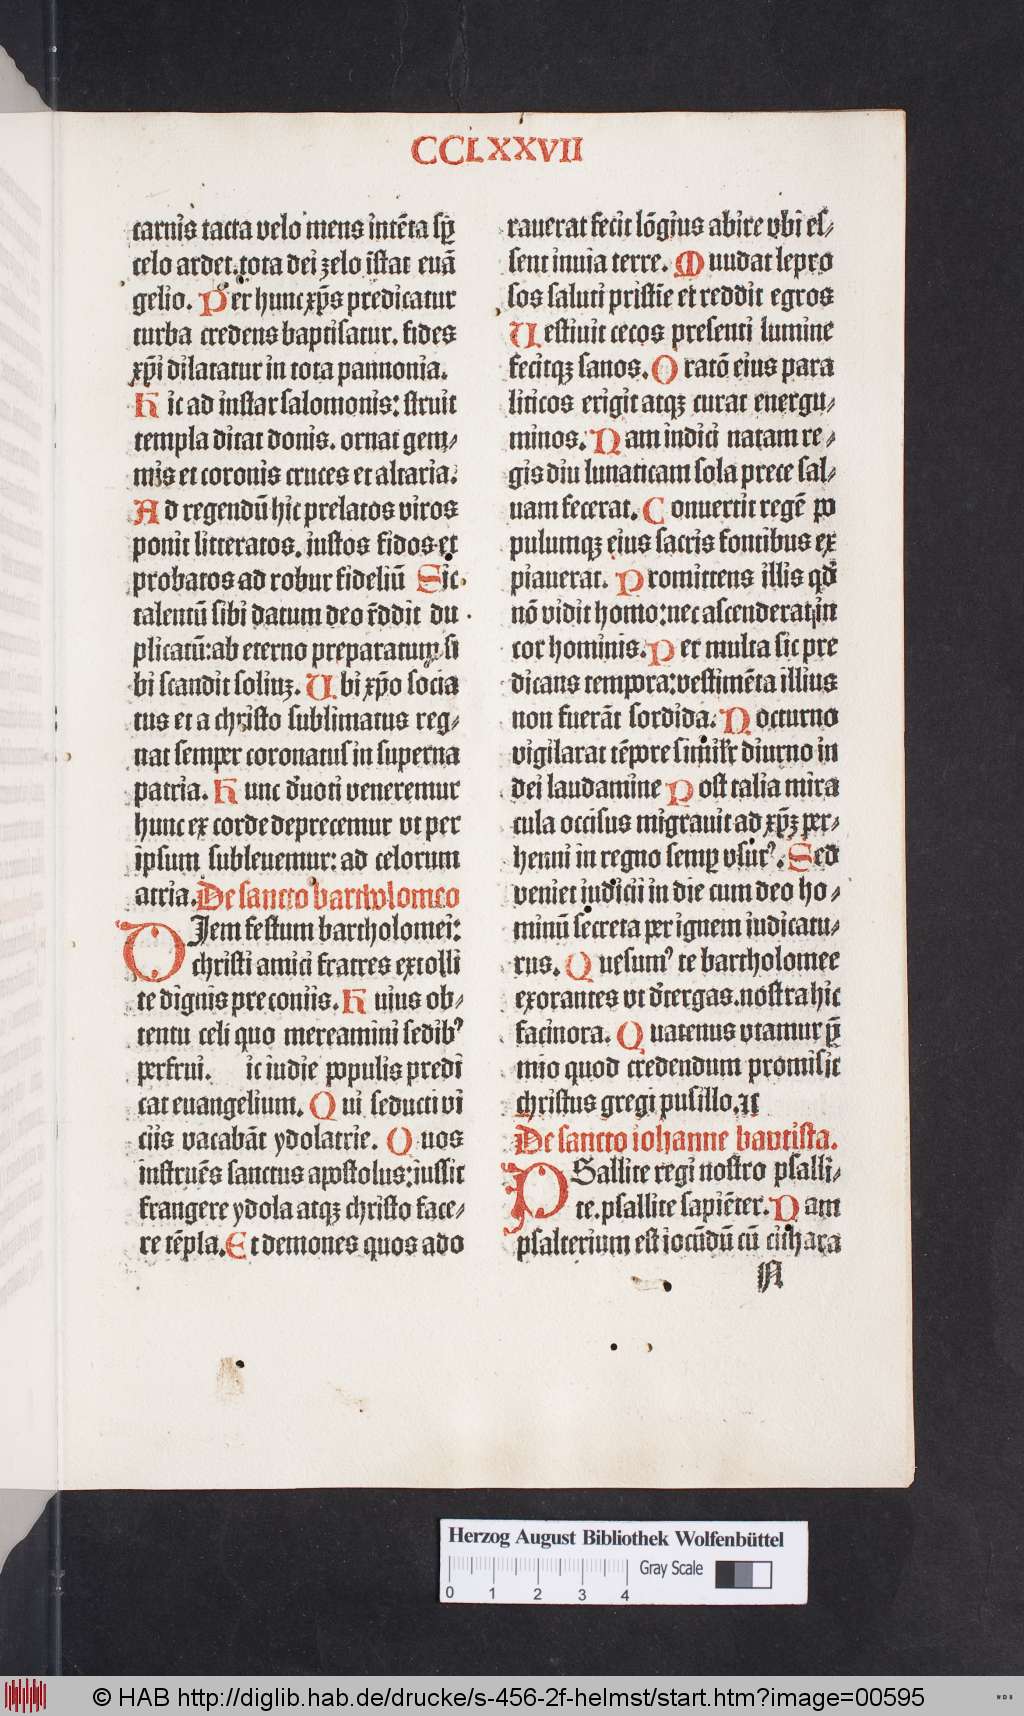 CCLXXVII
carnis tacta velo mens intēta sp̄
celo ardet. tota dei zelo īstat euā
gelio. Per hunc xp̄s predicatur
turba credens baptisatur. fides
xp̄i dilatatur in tota pannonia.
Hic ad instar salomonis: struit
templa ditat donis. ornat gem⸗
mis et coronis cruces et altaria.
Ad regendū hic prelatos viros
ponit litteratos. iustos fidos et
probatos ad robur fideliū Sic
talentū sibi datum deo r̄ddit du
plicatū: ab eterno preparatum si
bi scandit soliuꝫ. Ubi xp̄o socia
tus et a christo sublimatus reg⸗
nat semper coronatus in superna
patria. Hunc d̄uoti veneremur
hunc ex corde deprecemur vt per
ipsum subleuemur: ad celorum
atria. De sancto bartholomeo
DJem festum bartholomei:
christi amici fratres extolli
te dignis preconiis. Huius ob⸗
tentu celi quo mereamini sedibꝰ
perfrui. ic indie populis predi
cat euangelium. Qui seducti vi
ciis vacabāt ydolatrie. Quos
instruēs sanctus apostolus: iussit
frangere ydola atqꝫ christo face⸗
re tēpla. Et demones quos ado
rauerat fecit lōgius abire vbi es⸗
sent inuia terre. Muudat lepro
sos saluti pristie et reddit egros
Uestiuit cecos presenti lumine
fecitqꝫ sanos. Oratō eius para
liticos erigit atqꝫ curat energu⸗
minos. Nam indici natam re⸗
gis diu lunaticam sola prece sal⸗
uam fecerat. Conuertit regē po
pulumqꝫ eius sacris fontibus ex
piauerat. Promittens illis qd̄
nō vidit homo: nec ascenderat in
cor hominis. Per multa sic pre
dicans tempora: vestimēta illius
non fuerāt sordida. Nocturno
vigilarat tēpore simikr diurno in
dei laudamine Post talia mira
cula occisus migrauit ad xp̄ꝫ per⸗
henni in regno semꝑ vsurꝰ. Sed
veniet iudicii in die cum deo ho⸗
minū secreta per ignem iudicatu⸗
rus. Quesumꝰ te bartholomee
exorantes vt d̄tergas. nostra hic
facinora. Quatenus vtamur p̄
mio quod credendum promisit
christus gregi pusillo.
De sancto iohanne bautista.
PSallite regi nostro psalli⸗
te. psallite sapiēter. Nam
psalterium est iocūdū cū cithara
N
Herzog August Bibliothek Wolfenbüttel
Gray Scale
0 1 2 3 4
© HAB http://diglib.hab.de/drucke/s-456-2f-helmst/start.htm?image=00595